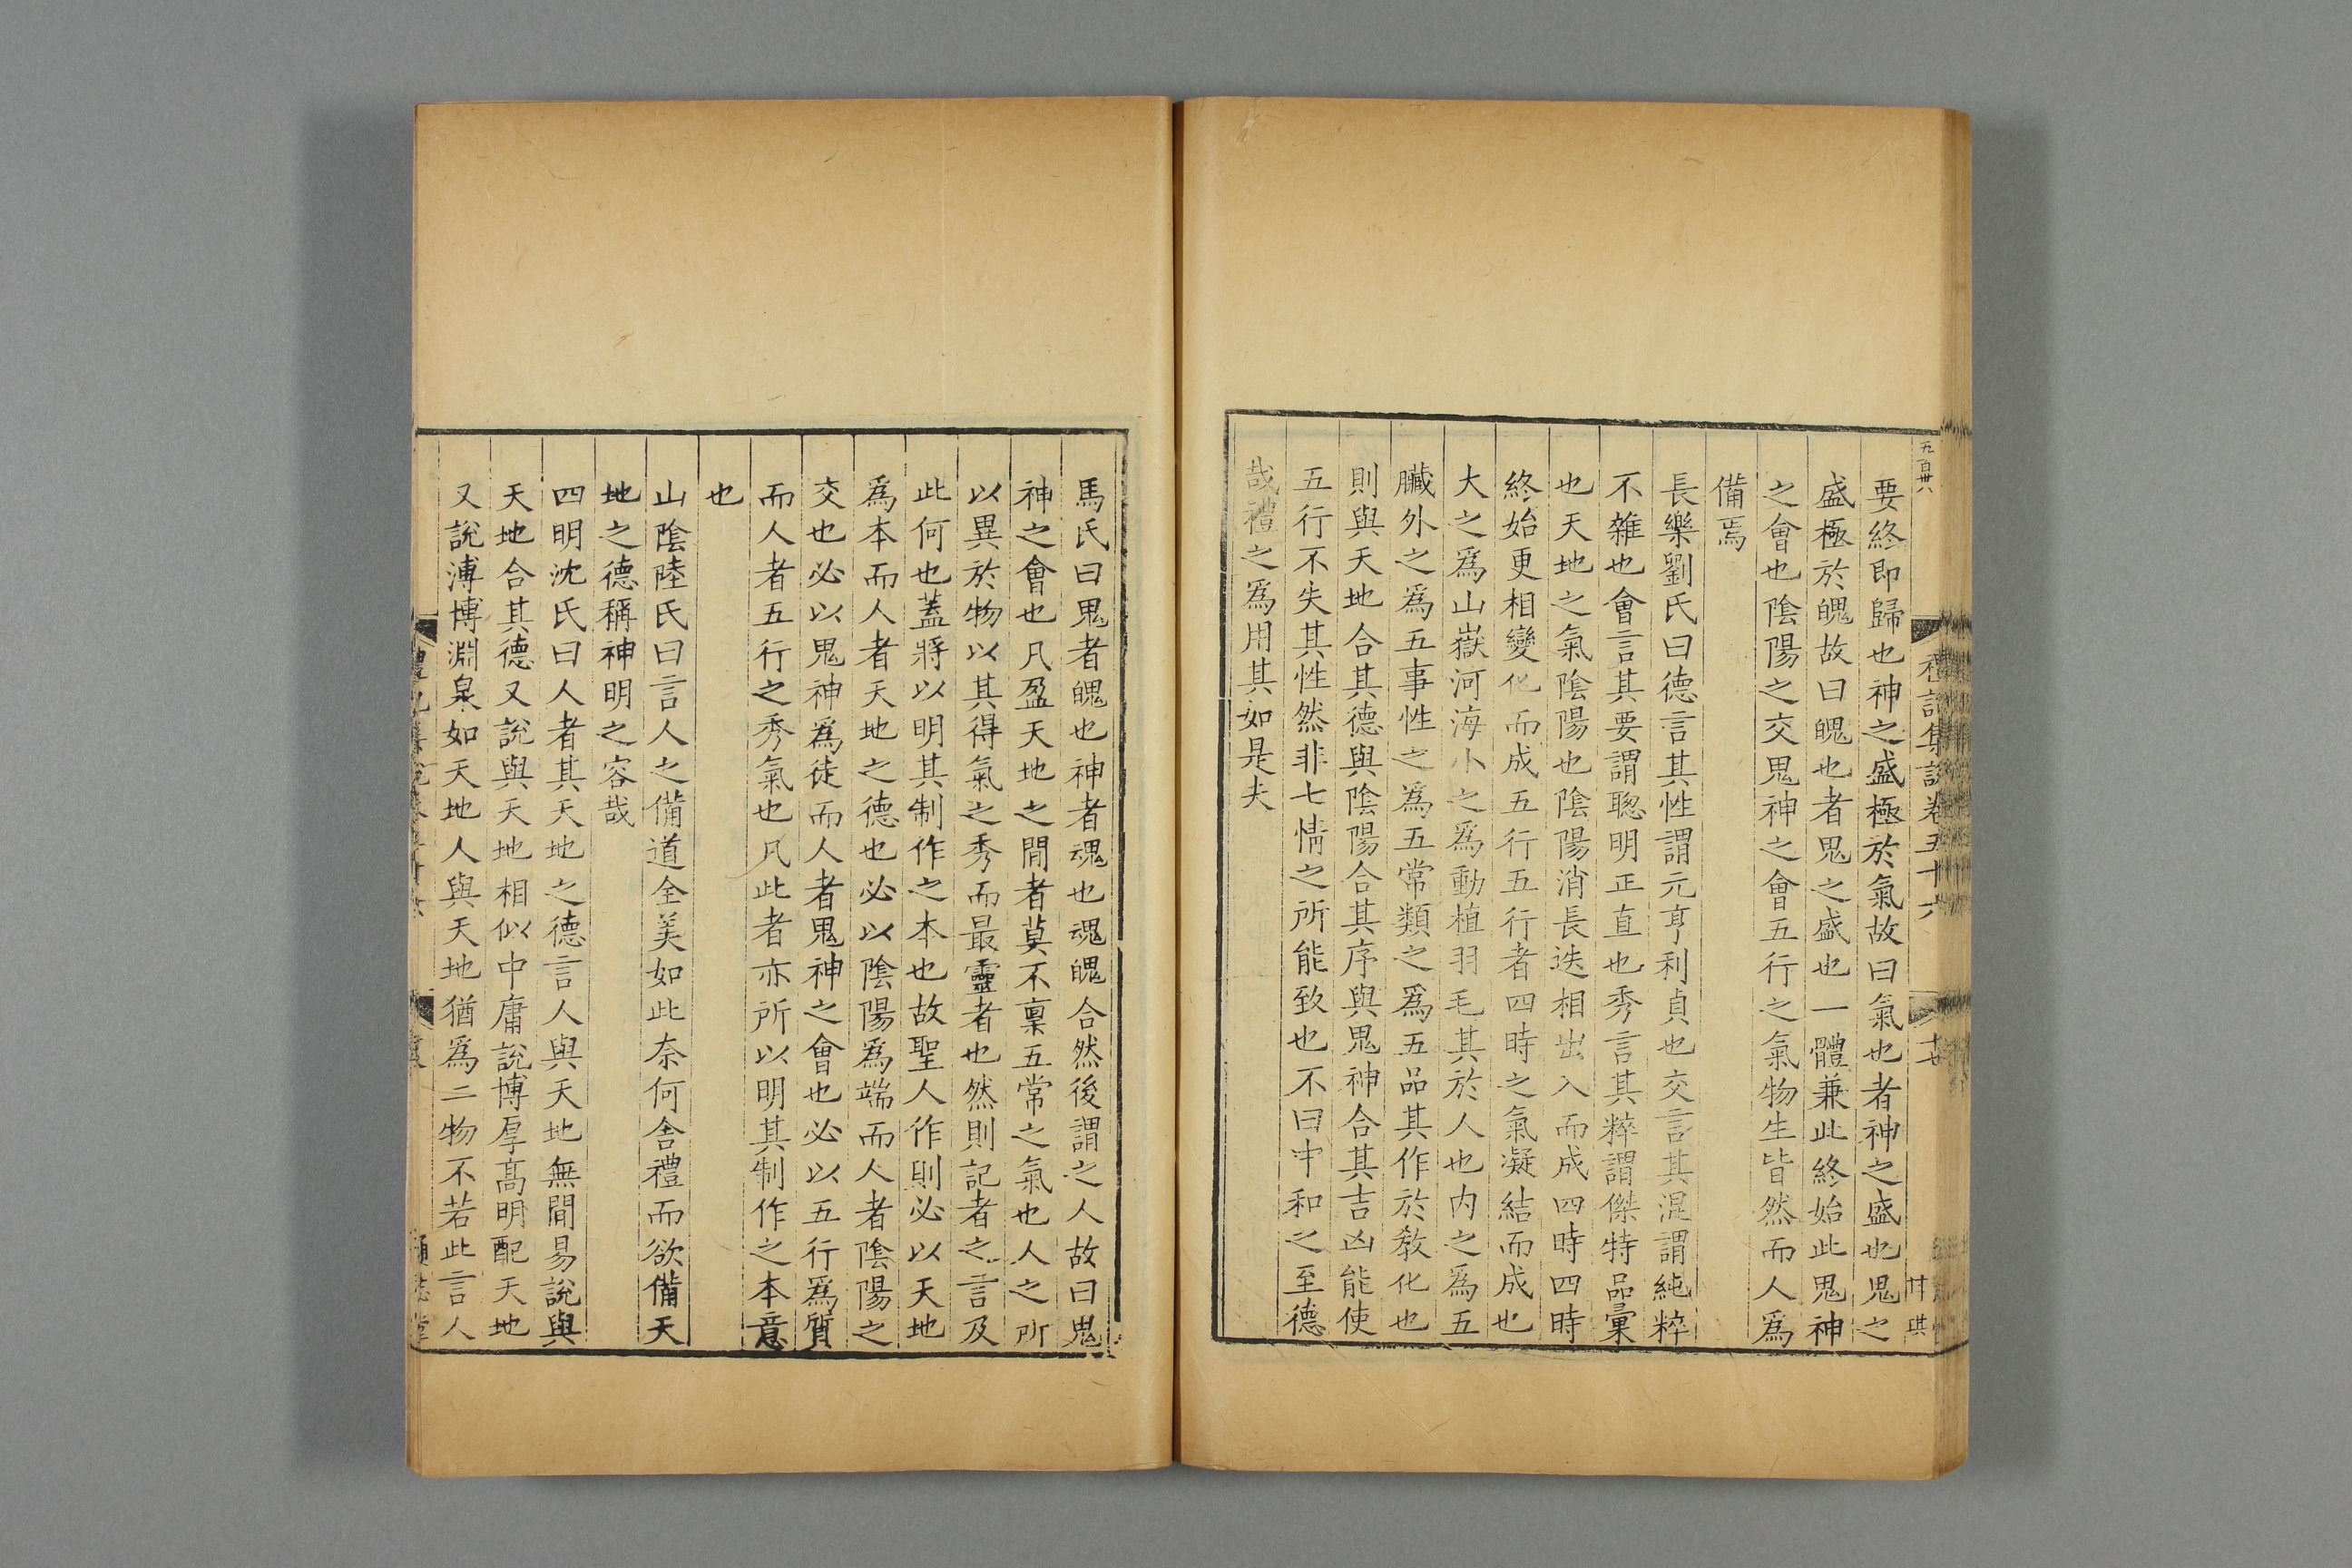 五百卅八
要終即歸也神之盛極於氣故曰氣也者神之盛也鬼之
盛極於魄故曰魄也者鬼之盛也一體兼此終始此鬼神
之會也陰陽之交鬼神之會五行之氣物生皆然而人爲
備焉
長樂劉氏曰德言其性謂元亨利貞也交言其混謂純粹
不雜也會言其要謂聦明正直也秀言其粹謂傑特品彙
也天地之氣陰陽也陰陽消長迭相出入而成四時四時
終始更相變化而成五行五行者四時之氣凝結而成也
大之爲山嶽河海小之爲動植羽毛其於人也内之爲五
臟外之爲五事性之爲五常類之爲五品其作於教化也
則與天地合其德與陰陽合其序與鬼神合其吉凶能使
五行不失其性然非七情之所能致也不曰中和之至德
哉禮之爲用其如是夫
馬氏曰鬼者魄也神者魂也魂魄合然後謂之人故曰鬼
神之會也凡盈天地之間者莫不禀五常之氣也人之所
以異於物以其得氣之秀而最靈者也然則記者之言及
此何也蓋將以明其制作之本也故聖人作則必以天地
爲本而人者天地之德也必以陰陽爲端而人者陰陽之
交也必以鬼神爲徒而人者鬼神之會也必以五行爲質
而人者五行之秀氣也凡此者亦所以明其制作之本意
也
山陰陸氏曰言人之備道全美如此奈何舍禮而欲備天
地之德稱神明之容哉
四明沈氏曰人者其天地之德言人與天地無間易說與
天地合其德又說與天地相似中庸說博厚髙明配天地
又說溥博淵泉如天地人與天地猶爲二物不若此言人